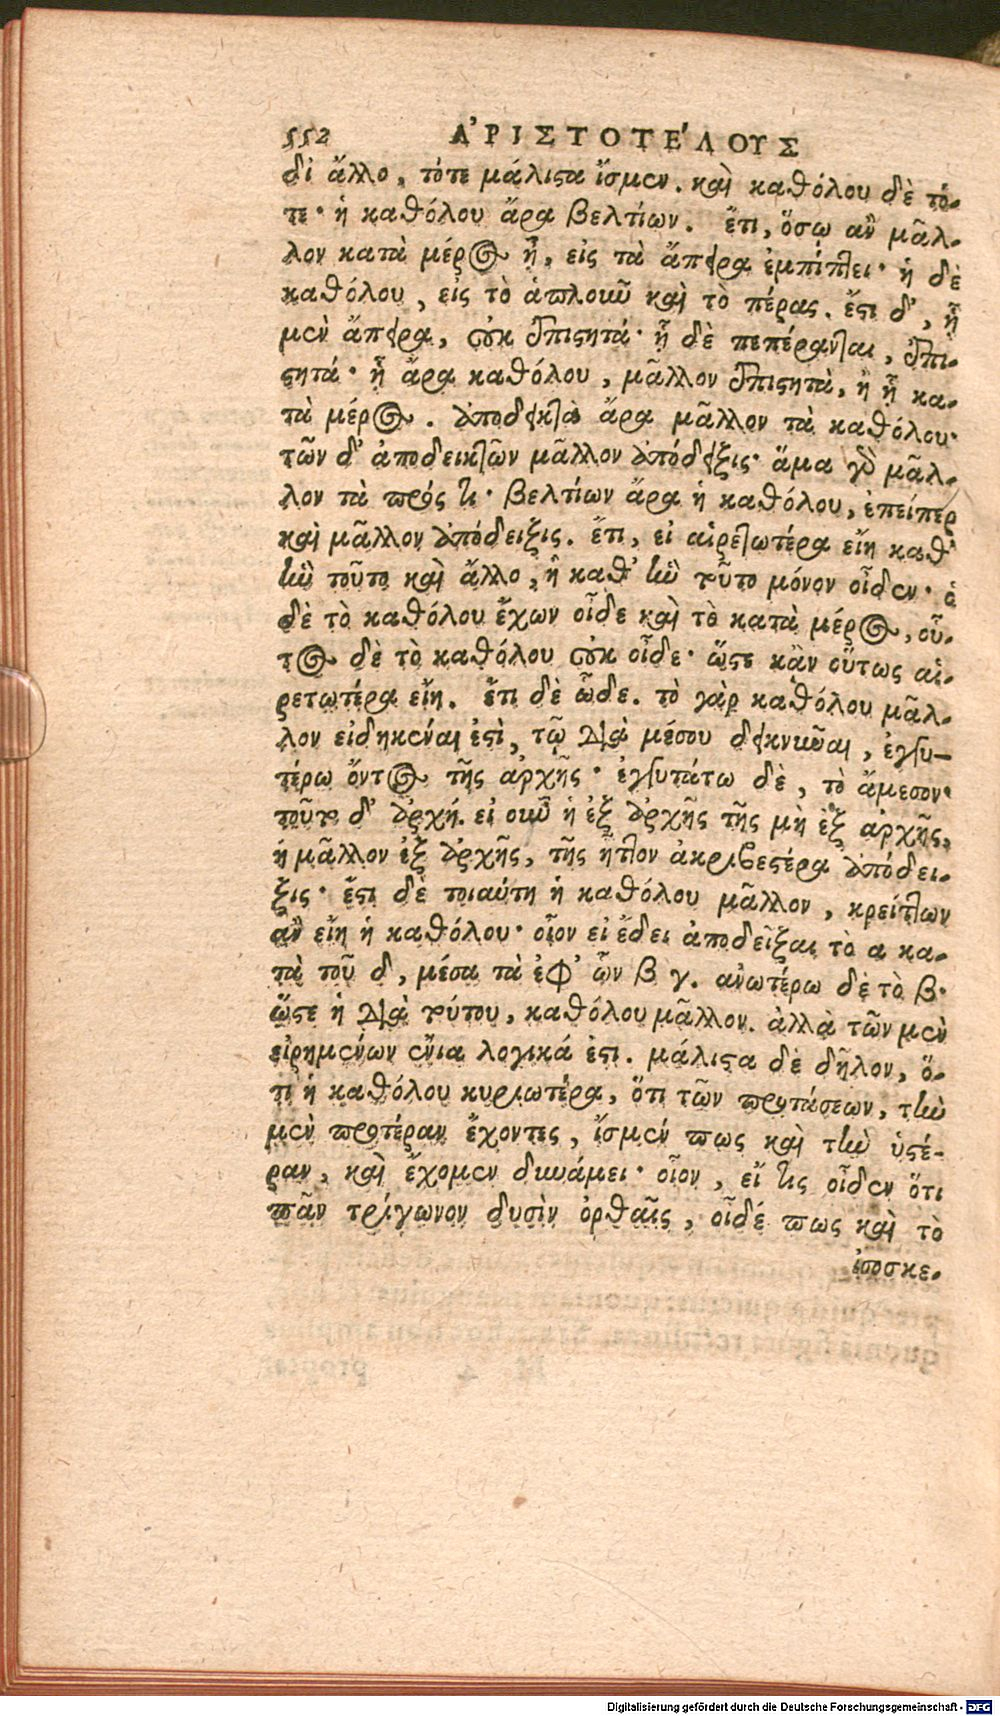 552 ἈΡΙΣΤΟΤΈΛΟΥΣ
δι ἄλλο, τότε μάλιϛα ἴσμεν. καὶ καθόλου δὲ τό-
τε· ἡ καθόλου ἄρα βελτίων. ἔτι, ὅσῳ ἂν μᾶλ-
λον κατὰ μέρος ᾖ, εἰς τὰ ἄπειρα ἐμπίπτει· ἡ δὲ
καθόλου, εἰς τὸ ἁπλοιῶ καὶ τὸ πέρας. ἔϛι δ', ᾗ
μὲν ἄπειρα, οὐκ ἐπιϛητά· ᾗ δὲ πεπέρανται, ἐπι-
ϛητά· ᾗ ἄρα καθόλου, μᾶλλον ἐπιϛητὰ, ἢ ᾗ κα-
τὰ μέρος. ἀποδεικτὰ ἄρα μᾶλλον τὰ καθόλου·
τῶν δ' ἀποδεικτῶν μᾶλλον ἀπόδειξις· ἅμα γὰρ μᾶλ-
λον τὰ πρός τι· βελτίων ἄρα ἡ καθόλου, ἐπείπερ
καὶ μᾶλλον ἀπόδειξις. ἔτι, εἰ αἱρετωτέρα εἴη καθ'
ἣν τοῦτο καὶ ἄλλο, ἢ καθ' ἣν τοῦτο μόνον οἶδεν· ὁ
δὲ τὸ καθόλου ἔχων οἶδε καὶ τὸ κατὰ μέρος, οὗ-
τος δὲ τὸ καθόλου οὐκ οἶδε· ὥϛε κἂν οὕτως αἱ-
ρετωτέρα εἴη. ἔτι δὲ ὧδε. τὸ γὰρ καθόλου μᾶλ-
λον εἰδηκέναι ἐϛὶ, τῷ διὰ μέσου δεικνύναι, ἐγγυ-
τέρω ὄντος τῆς ἀρχῆς· ἐγγυτάτω δὲ, τὸ ἄμεσον·
τοῦτο δ' ἀρχή. εἰ οὖν ἡ ἐξ ἀρχῆς τῆς μὴ ἐξ ἀρχῆς,
ἡ μᾶλλον ἐξ ἀρχῆς, τῆς ἧττον ἀκριβεϛέρα ἀπόδει-
ξις· ἔϛι δὲ τοιαύτη ἡ καθόλου μᾶλλον, κρείττων
ἂν εἴη ἡ καθόλου· οἷον εἰ ἔδει ἀποδεῖξαι τὸ α κα-
τὰ τοῦ δ, μέσα τὰ ἐφ' ὧν β γ. ἀνωτέρω δὲ τὸ β·
ὥϛε ἡ διὰ τούτου, καθόλου μᾶλλον. ἀλλὰ τῶν μὲν
εἰρημένων ἔνια λογικά ἐϛι. μάλιϛα δὲ δῆλον, ὅ-
τι ἡ καθόλου κυριωτέρα, ὅτι τῶν προτάσεων, τὴν
μὲν προτέραν ἔχοντες, ἴσμέν πως καὶ τὴν ὑϛέ-
ραν, καὶ ἔχομεν δυνάμει· οἷον, εἴ τις οἶδεν ὅτι
πᾶν τρίγωνον δυσὶν ὀρθαῖς, οἶδέ πως καὶ τὸ
ἰσοσκε-
Digitalisierung gefördert durch die Deutsche Forschungsgemeinschaft - DFG